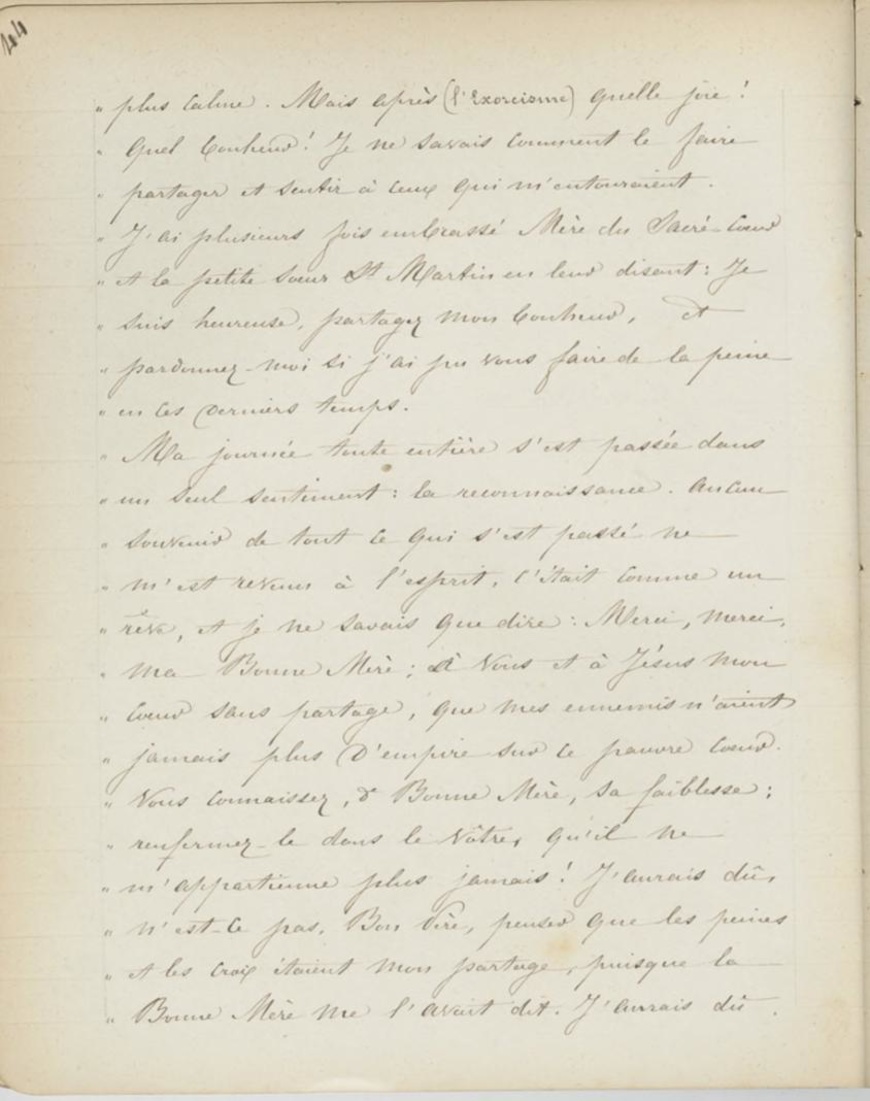 44
" plus calme. Mais après (l'Exorcisme) quelle joie !
" quel bonheur ! Je ne savais comment le faire
" partager et sentir à ceux qui m'entouraient.
" J'ai plusieurs fois embrassé Mère du Sacré-Cœur
" et la petite sœur St Martin en leur disant : Je
" suis heureuse, partagez mon bonheur, et
" pardonnez-moi si j'ai pu vous faire de la peine
" en ces derniers temps.
" Ma journée toute entière s'est passée dans
" un seul sentiment : la reconnaissance. Aucun
" souvenir de tout ce qui s'est passé ne
" m'est revenu à l'esprit, c'était comme un
" rêve, et je ne savais que dire : Merci, merci,
" ma Bonne Mère ; à Vous et à Jésus mon
" cœur sans partage, que mes ennemis n'aient
" jamais plus d'empire sur ce pauvre cœur.
" Vous connaissez, ô Bonne Mère, sa faiblesse ;
" renfermez-le dans le Vôtre, qu'il ne
" m'appartienne plus jamais ! J'aurais dû,
" n'est-ce pas, Bon Père, penser que les peines
" et les croix étaient mon partage, puisque la
" Bonne Mère me l'avait dit. J'aurais dû